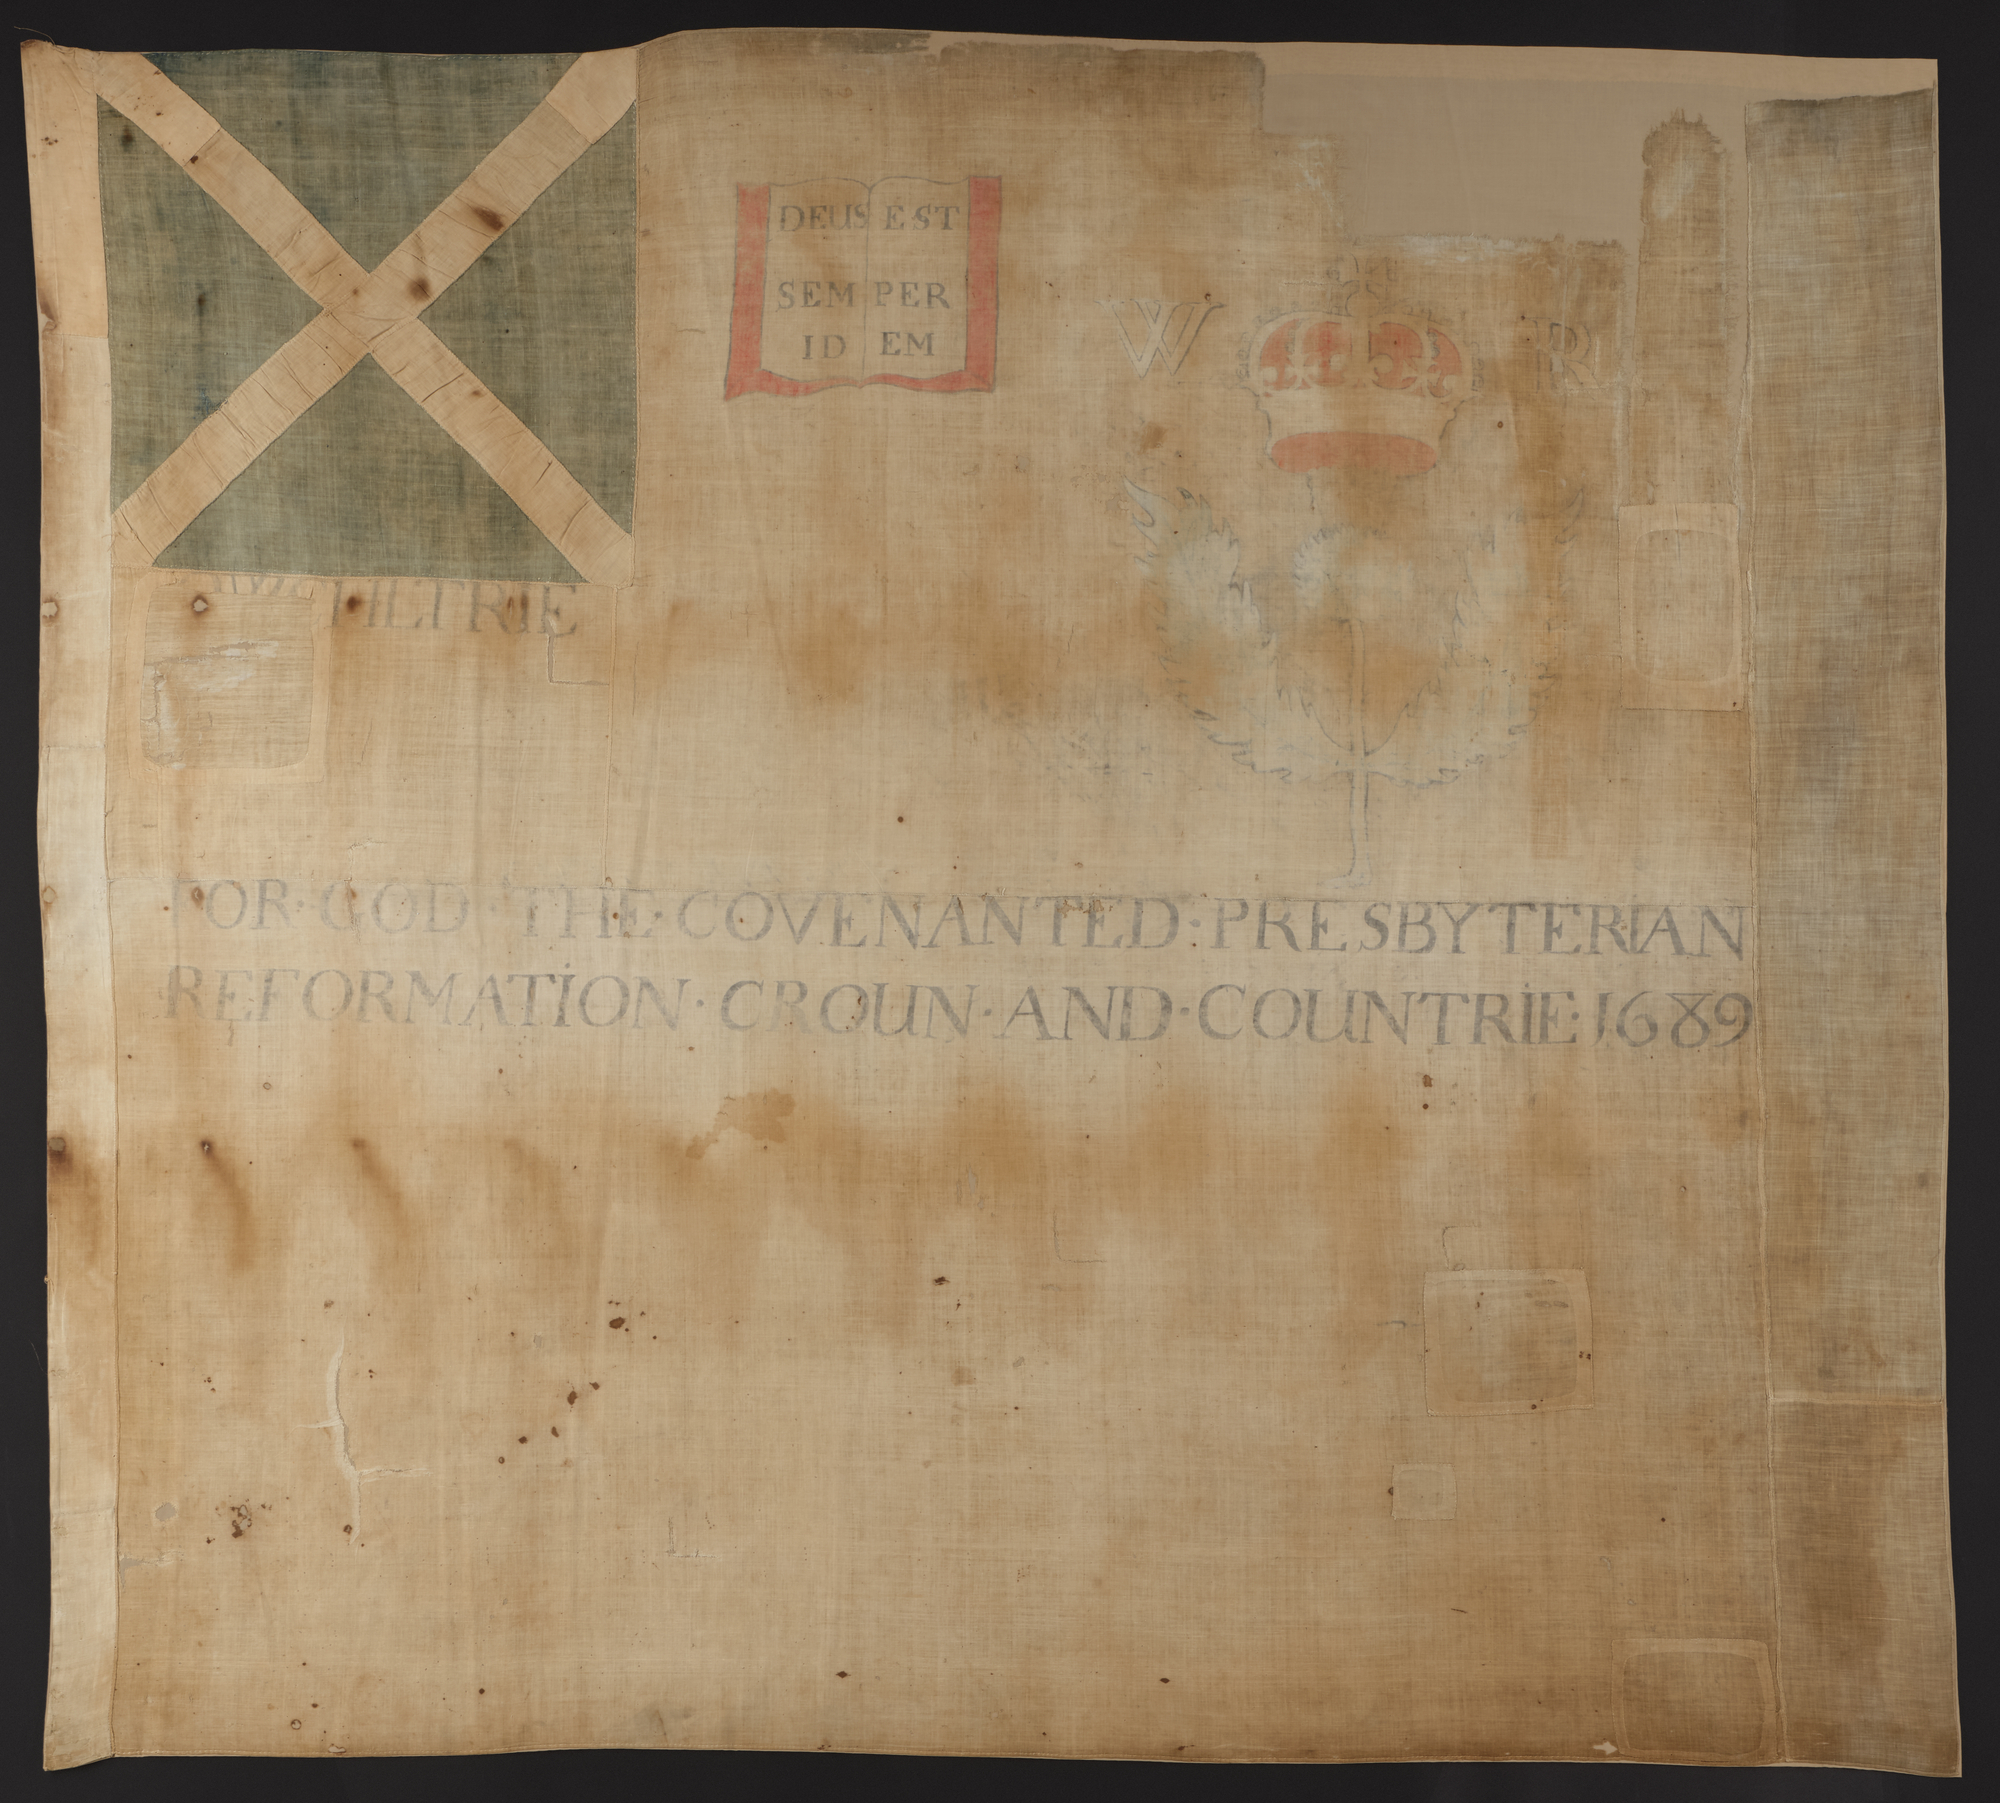 DEUS EST
SEMPER
IDEM
W R
FOR·GOD·THE·COVENANTED·PRESBYTERIAN
REFORMATION·CROUN·AND·COUNTRIE·1689